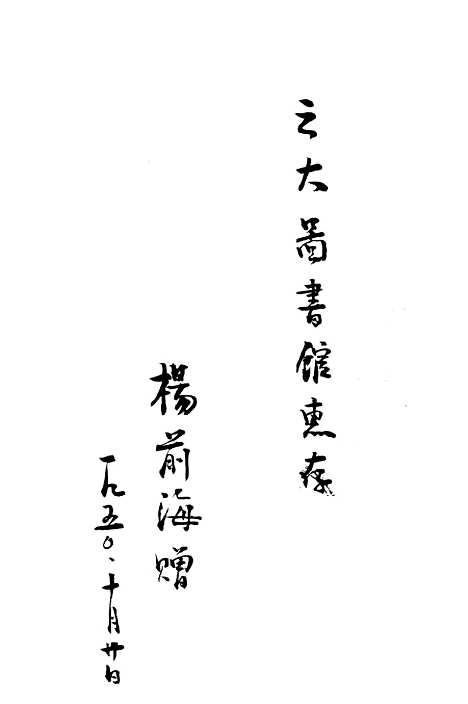 之大啚書館惠存
楊前海贈
一九五〇、十月廿日